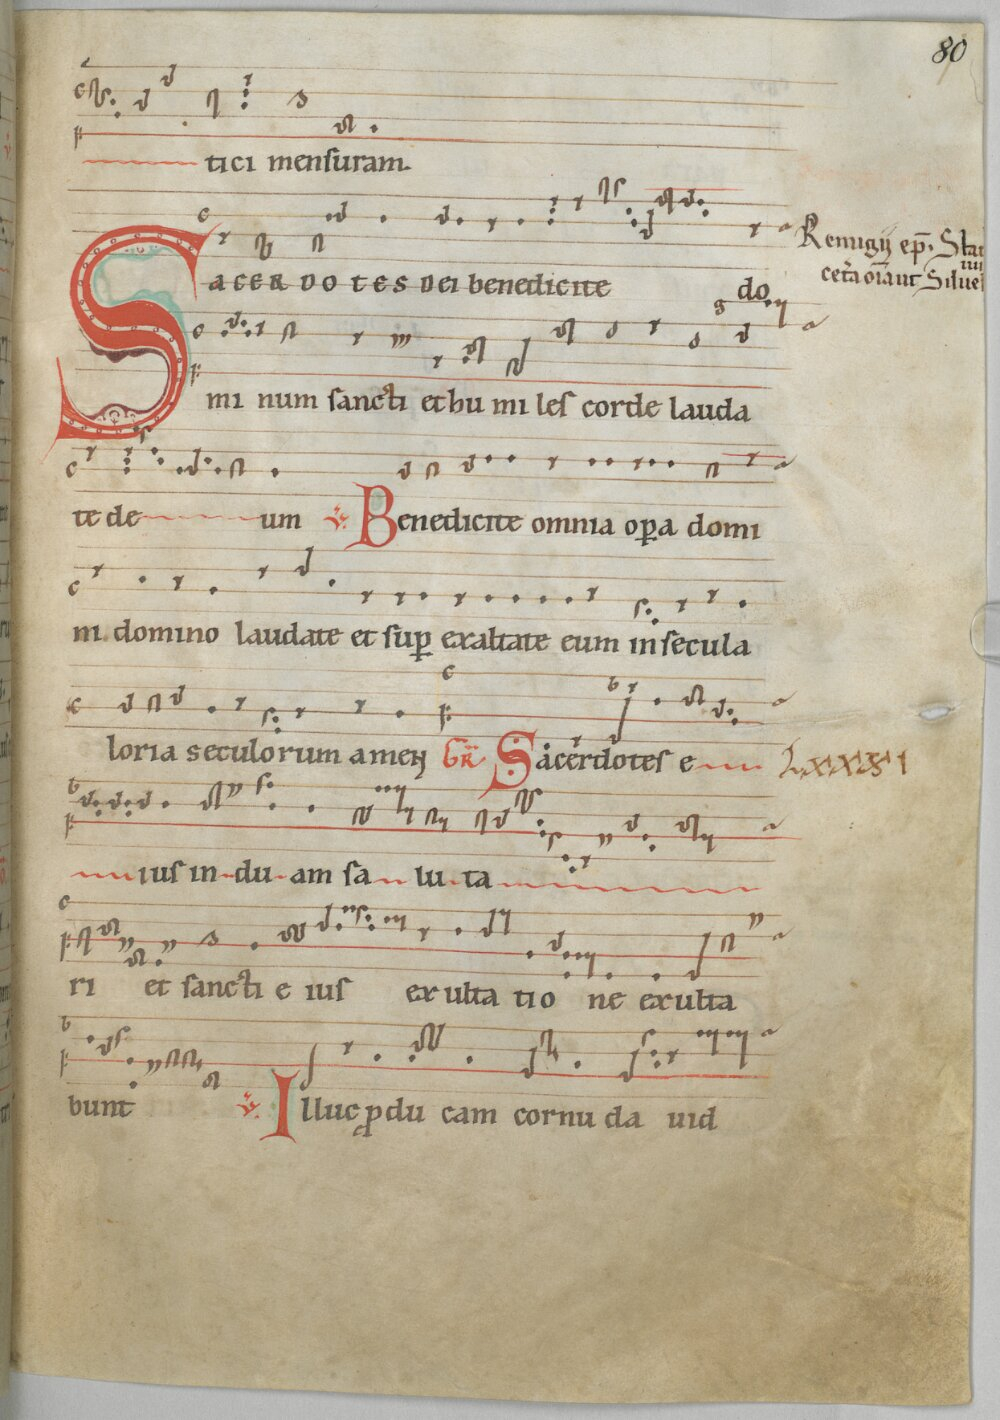 80
tici mensuram.
SACERDOTES DEI benedicite
do
Remigij ep̄. 
cetã oĩa ut Silue
mi num sancti et hu mi les corde lauda
te de um ℣. Benedicite omnia oꝑa domi
ni domino laudate et suꝑ exaltate eum in secula
loria seculorum amen GR̃ Sacerdotes e
LXXXVI
ius in du am sa lu ta
ri et sancti e ius exulta tio ne exulta
bunt ℣. Illuc ꝓdu cam cornu da uid